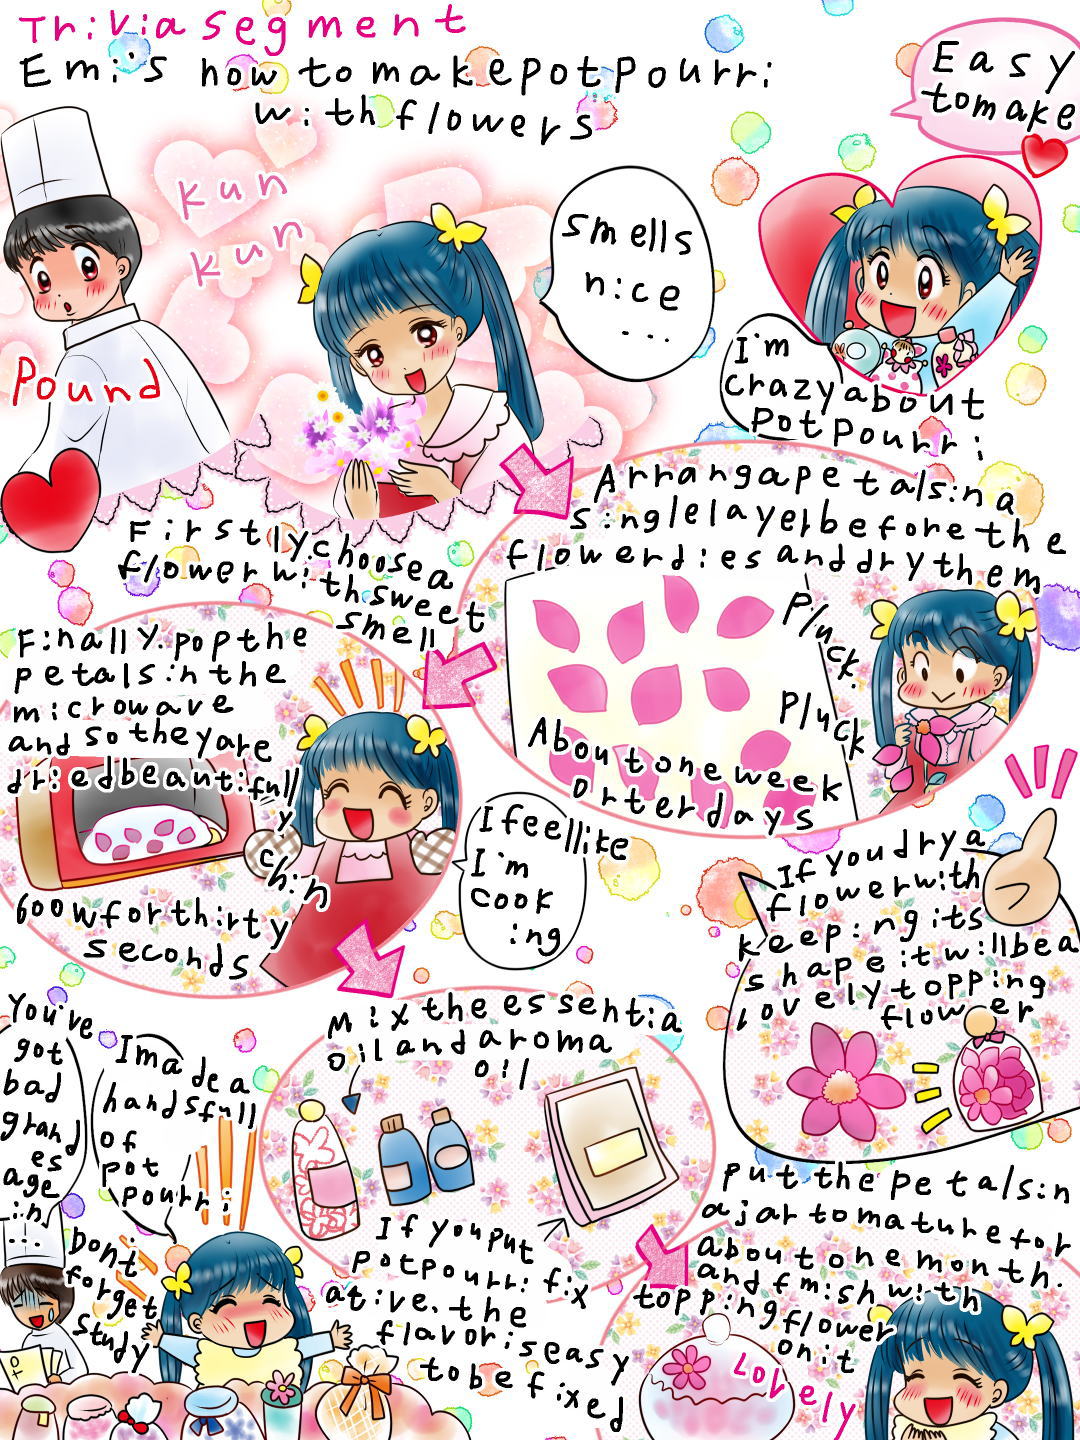 Trivia segment
Emi's how to make potpourri
with flowers
Easy
to make
Kun
Kun
smells
nice
...
Pound
I'm
crazy about
potpourri
Firstly choose a
flower with sweet
smell
Arrang a petals in a
single layer before the
flower dies and dry them
Pluck.
Pluck
About one week
or ter days
Finally. pop the
petals in the
microwave
and so they are
dried beautifully
chin
600w for thirty
seconds
I feel like
I'm
cook
ing
If you dry a
flower with
keeping its
shape it will be a
lovely topping
flower
Mix the essentia
oil and aroma
oil
If you put
potpourri fix
ative. the
flavor is easy
to be fixed
Put the petals in
a jar to mature for
about one month.
and finish with
topping flower
on it
Lovely
You've
got
bad
grand
es
age
in
...
I made a
handsfull
of
pot
pourri
Don't
forget
study